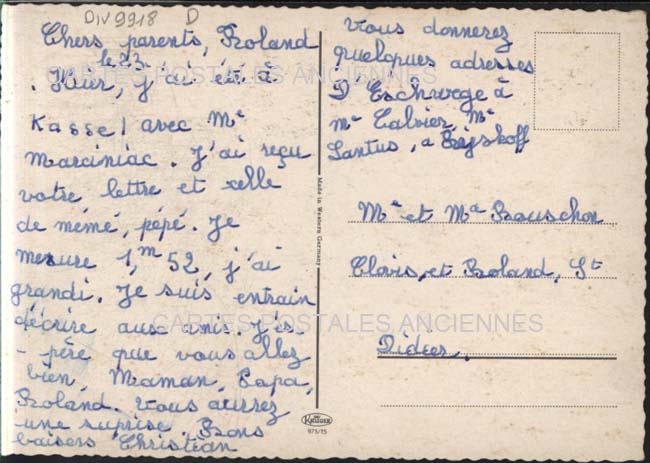 DIV9918 D
Chers parents, Roland
le 23.
. Hier, j'ai été à
Kassel avec Mr
Marciniac. J'ai reçu
votre lettre et celle
de mémé, pépé. Je
mesure 1,m 52, j'ai
grandi. Je suis entrain
décrire aux amis. J'es
- père que vous allez
bien, Maman, Papa,
Roland. Vous aurrez
une suprise. Bons
baisers Christian
Vous donnerez
quelques adresses
D'Eschwege à
Mr Calvier, Mr
Santus, a
Made in Western Germany
Mr et Me Rauschon
Clovis, et Roland, St
Didier.
KRÜGER
975/15
CARTES POSTALES ANCIENNES
CARTES POSTALES ANCIENNES